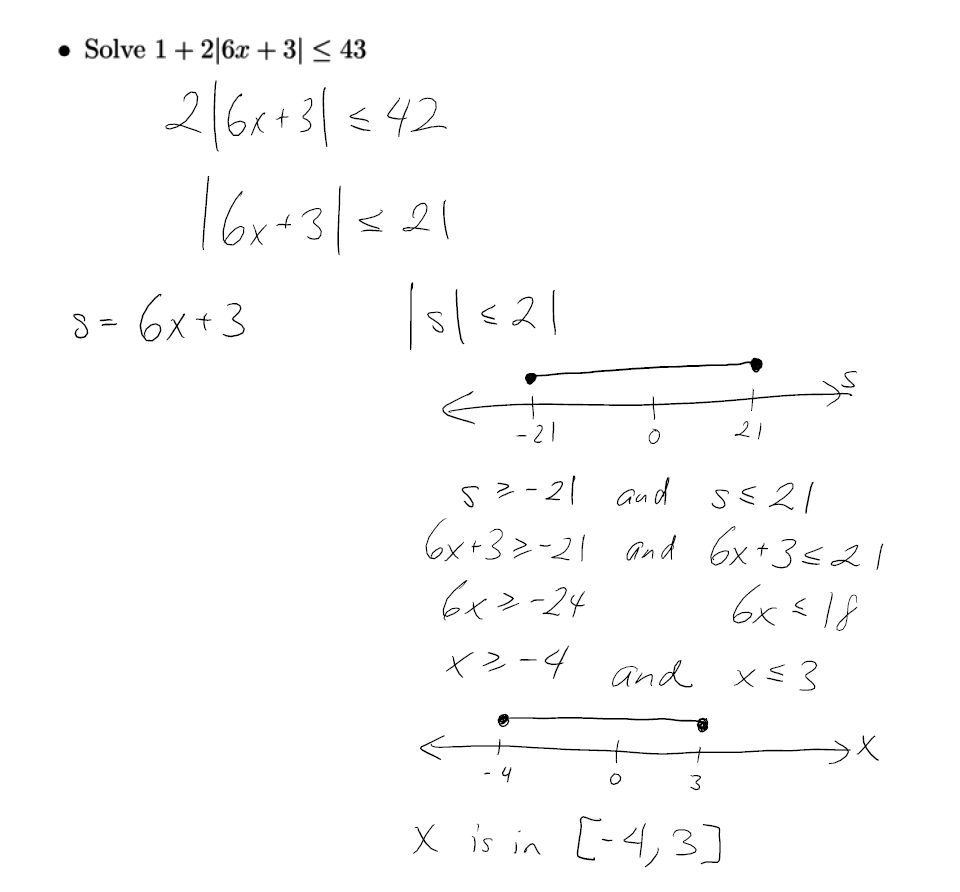 • Solve 1 + 2|6x + 3| ≤ 43
2|6x+3| ≤ 42
|6x+3| ≤ 21
s = 6x+3 |s| ≤ 21
s
-21 0 21
s ≥ -21 and s ≤ 21
6x+3 ≥ -21 and 6x+3 ≤ 21
6x ≥ -24 6x ≤ 18
x ≥ -4 and x ≤ 3
x
-4 0 3
x is in [-4, 3]